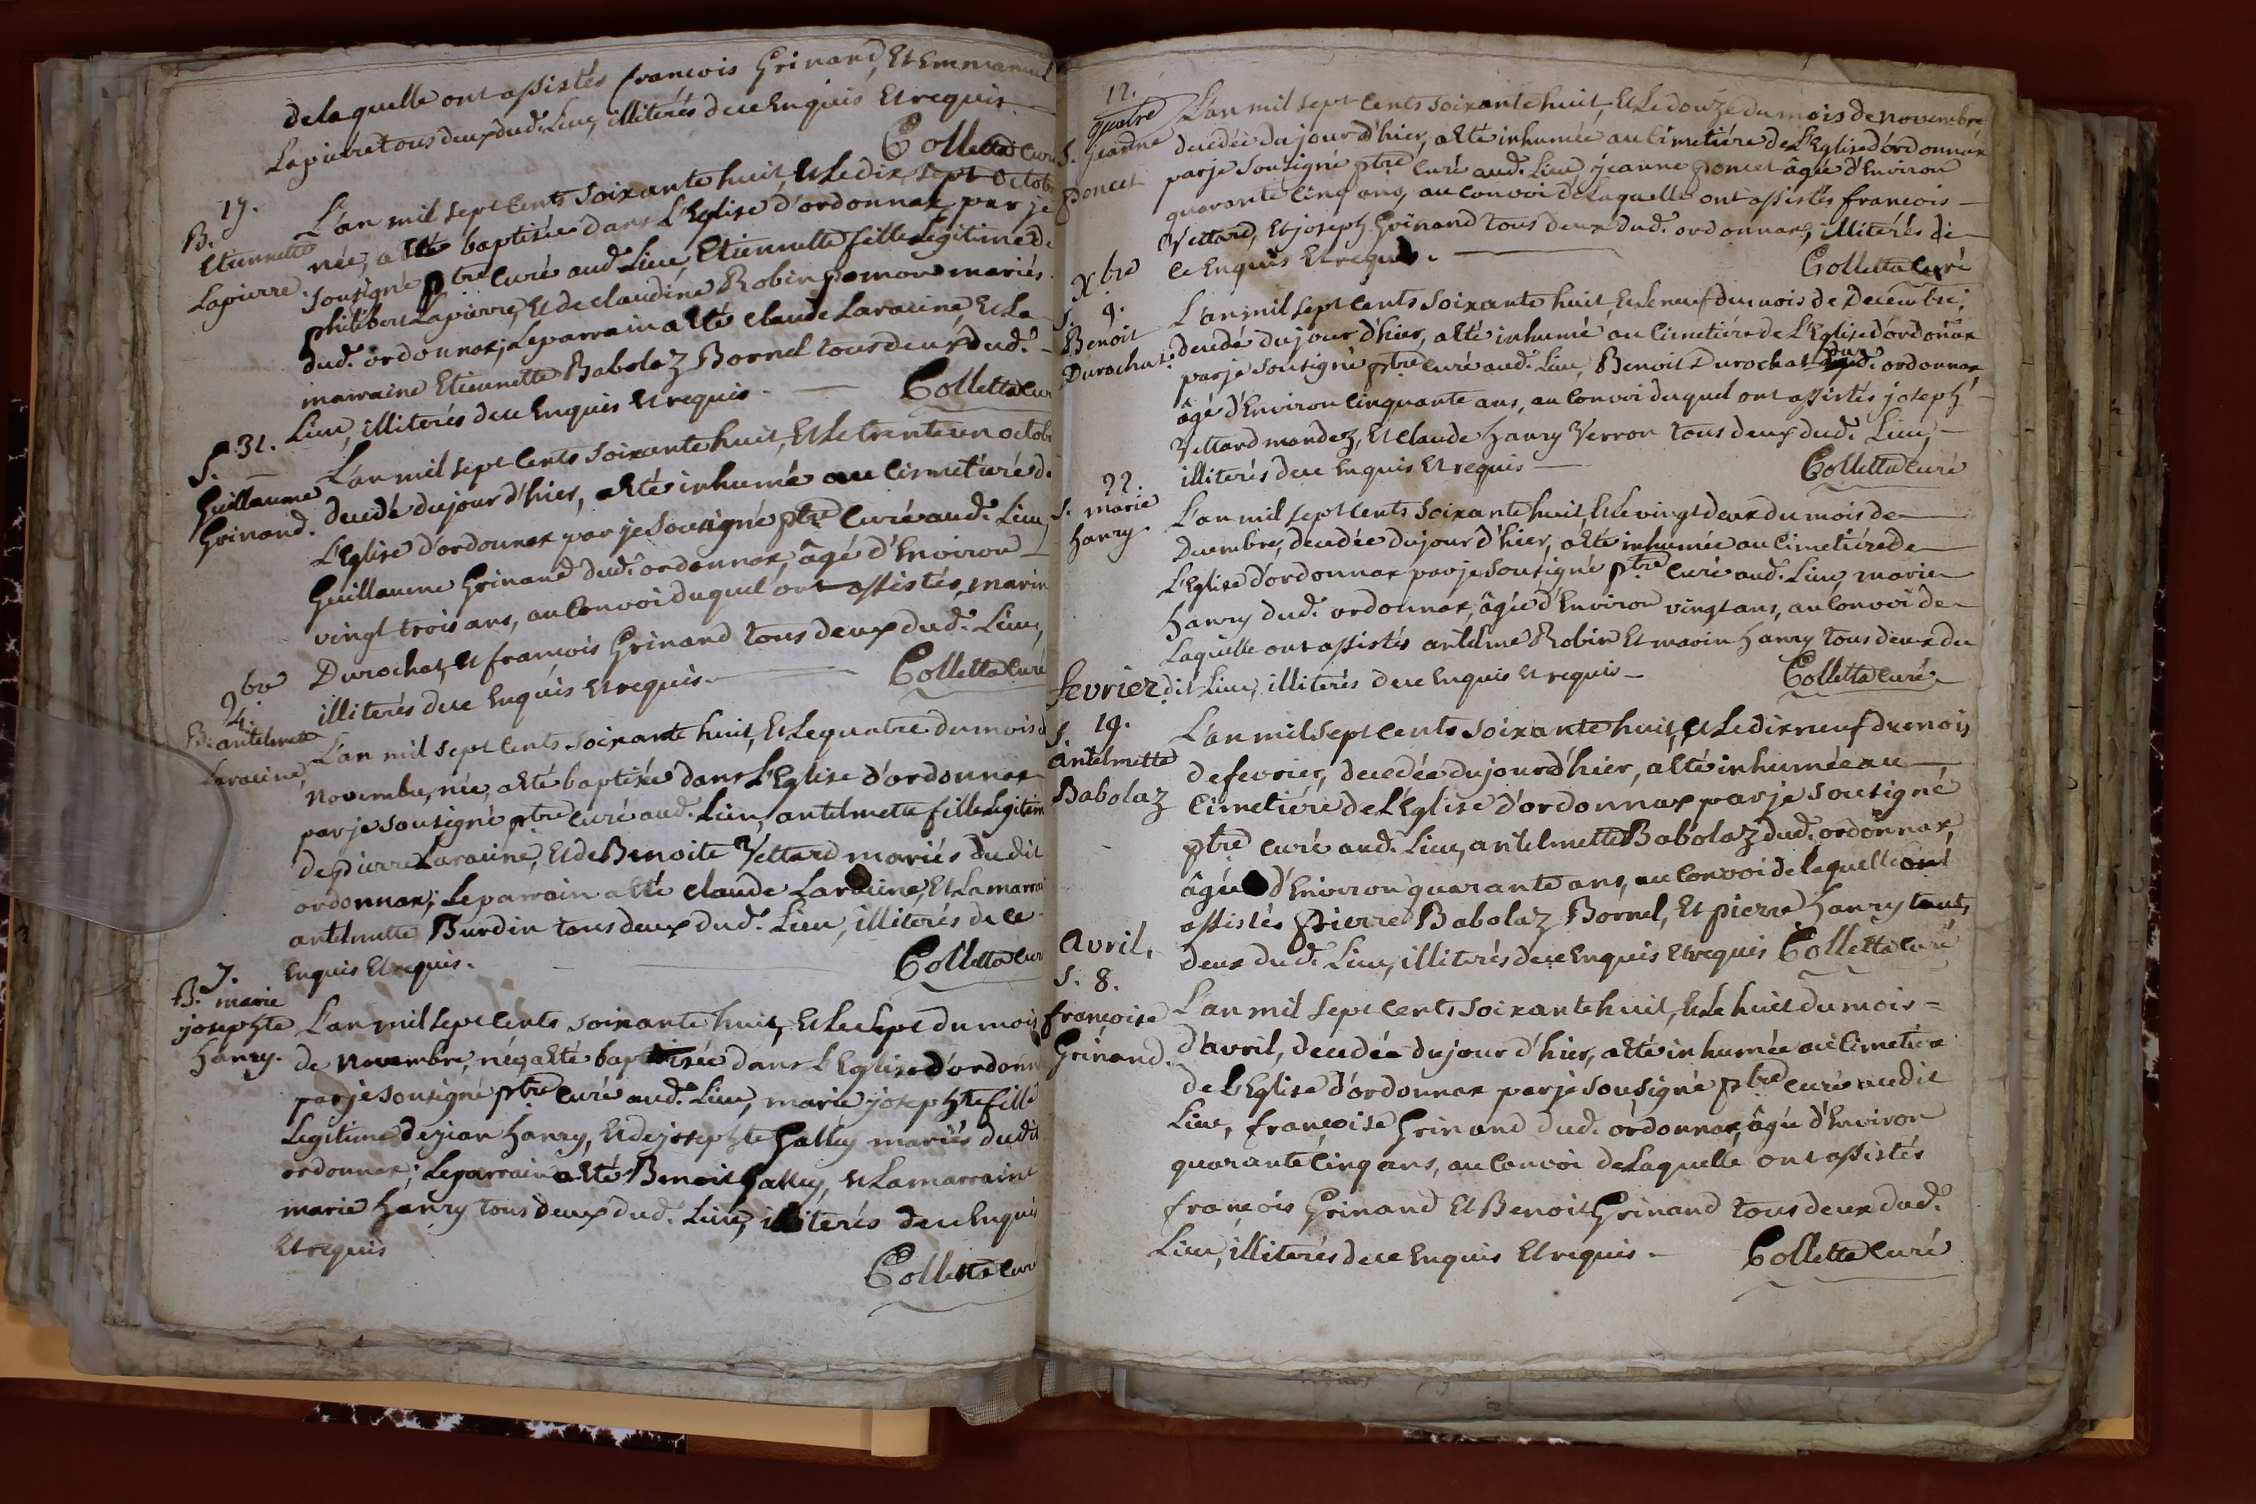 de laquelle ont assistés francois Grinand, Et Emmanuel
Lapierre tous deux dud. Lieu, illiterés de ce Enquis Et requis
Colletta Curé
17.
B.
Etiennette
Lapierre
L'an mil sept Cents Soixante huit, Et Le dix sept Octobre
née, a Eté baptisée dans L'Eglise d'ordonnax par je
Sousigné ptre Curé aud. Lieu, Etiennette fille Legitime de
philibert Lapierre, Et de Claudine Robin pomon mariés
dud. ordonnax; Le parrain a Eté Claude Laracine, Et La
marraine Etiennette Babolaz Bornel tous deux dud.
Lieu, illiterés de ce Enquis Et requis.
Colletta Curé
31.
S.
Guillaume
Grinand.
L'an mil sept Cents Soixante huit, Et Le trente un octobre
decedé du jour d'hier, a Eté inhumé au Cimetiére de
L'Eglise d'ordonnax par je Sousigné ptre Curé aud. Lieu,
Guillaume Grinand dud. ordonnax, âgé d'Environ
vingt trois ans, au Convoi duquel ont assistés marin
Durochat, Et francois Grinand tous deux dud. Lieu,
illiterés de ce Enquis Et requis.
Colletta Curé
9bre
4.
B. antelmette
Laracine,
L'an mil sept Cents Soixante huit, Et Le quatre du mois de
Novembre, née, a Eté baptisée dans L'Eglise d'ordonnax
par je Sousigné ptre Curé aud. Lieu, antelmette fille Legitime
de pierre Laracine, Et de Benoite Vettard mariés dudit
ordonnax; Le parrain a Eté Claude Laracine, Et La marraine
antelmette Burdin tous deux dud. Lieu, illiterés de ce
Enquis Et requis.
Colletta Curé
7.
B. marie
josephte
Hanry.
L'an mil Sept Cents Soixante huit, Et Le Sept du mois
de Novembre, née, a Eté baptisée dans L'Eglise d'ordonnax
par je Sousigné ptre Curé aud. Lieu, marie josephte fille
Legitime de jean Hanry, Et de josephte Galley mariés dudit
ordonnax; Le parrain a Eté Benoit Galley, Et La marraine
marie Hanry tous deux dud. Lieu, illiterés de ce Enquis
Et requis
Colletta Curé
12.
quatre
S. jeanne
Poncet
L'an mil Sept Cents Soixante huit, Et Le douze du mois de novembre
decedée du jour d'hier, a Eté inhumée au Cimetiére de L'Eglise d'ordonnax
par je Sousigné ptre Curé aud. Lieu, jeanne Poncet âgée d'Environ
quarante Cinq ans, au Convoi de Laquelle ont assistés francois
Vettard, Et joseph Grinand tous deux dud. ordonnax, illiterés de
ce Enquis Et requis.
Colletta Curé
Xbre
9.
S.
Benoit
Durochat.
L'an mil Sept Cents Soixante huit, Et Le neuf du mois de Decembre,
decedé du jour d'hier, a Eté inhumé au Cimetiére de L'Eglise d'ordonnax
par je Sousigné ptre Curé aud. Lieu, Benoit Durochat dud. ordonnax
âgé d'Environ Cinquante ans, au Convoi duquel ont assistés joseph
Vettard mandez, Et Claude Hanry Verron tous deux dud. Lieu,
illiterés de ce Enquis Et requis
Colletta Curé
22.
S. marie
Hanry
L'an mil Sept Cents Soixante huit, Et Le vingt deux du mois de
Decembre, decedée du jour d'hier, a Eté inhumée au Cimetiére de
L'Eglise d'ordonnax par je Sousigné ptre Curé aud. Lieu, marie
Hanry dud. ordonnax, âgée d'Environ vingt ans, au Convoi de
Laquelle ont assistés antelme Robin Et marin Hanry tous deux du
dit Lieu, illiterés de ce Enquis Et requis
Colletta Curé.
fevrier.
19.
S.
Antelmette
Babolaz
L'an mil Sept Cents Soixante huit, Et Le dix neuf du mois
de fevrier, decedée du jour d'hier, a Eté inhumée au
Cimetiére de L'Eglise d'ordonnax par je Sousigné
ptre Curé aud. Lieu, antelmette Babolaz dud. ordonnax,
âgée d'Environ quarante ans, au Convoi de laquelle ont
assistés pierre Babolaz Bornel, Et pierre Hanry tous
deux dud. Lieu, illiterés de ce Enquis Et requis Colletta Curé
Avril,
S. 8.
françoise
Grinand.
L'an mil Sept Cents Soixante huit, Et Le huit du mois
d'avril, decedée du jour d'hier, a Eté inhumée au Cimetiere
de L'Eglise d'ordonnax par je Sousigné ptre Curé audit
Lieu, françoise Grinand dud. ordonnax, âgée d'Environ
quarante Cinq ans, au Convoi de Laquelle ont assistés
françois Grinand Et Benoit Grinand tous deux dud.
Lieu, illiterés de ce Enquis Et requis.
Colletta Curé